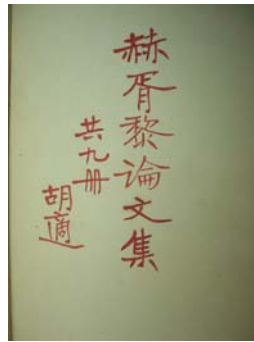 赫胥黎论文集
共九册
胡適